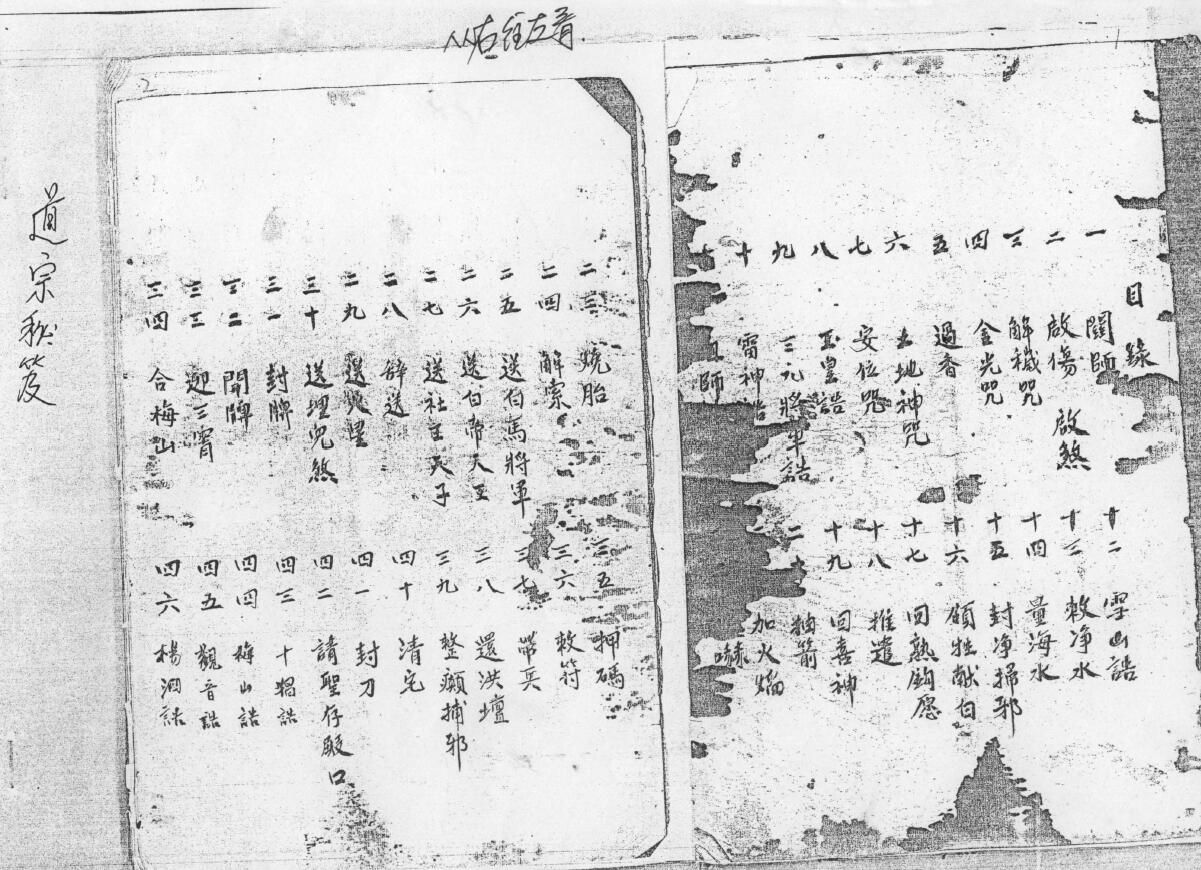 从右往左看
1
目錄
一 關師
二 啟傷 啟煞
三 解穢咒
四 金光咒
五 過香
六 土地神咒
七 安位咒
八 玉皇誥
九 三元將軍誥
十 雷神誥
十 師
十二 雪山誥
十三 敕净水
十四 量海水
十五 封净掃邪
十六 領牲献白
十七 回熟鈎愿
十八 推遣
十九 回喜神
二十 抽箭
加火焰
2
二三 燒胎
二四 解索
二五 送白馬將軍
二六 送白帝天王
二七 送社王天子
二八 辞送
二九 送災星
三十 送埋兒煞
三一 封牌
三二 開牌
三三 迎三霄
三四 合梅山
三五 押碼
三六 敕符
三七 带兵
三八 還洪壇
三九 整癲捕邪
四十 清宅
四一 封刀
四二 請聖存殿口
四三 十猖誥
四四 梅山誥
四五 觀音誥
四六 楊泗誥
道宗秘笈